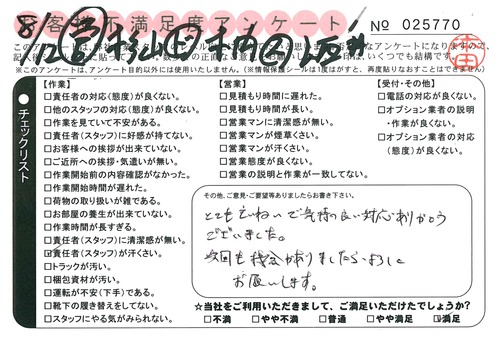 お客様不満足度アンケート
№ 025770
8/12
※このアンケートは、アンケート目的以外には使用いたしません。(※情報保護シールは1度はがすと、再度貼りなおすことはできません)
チェックリスト
【作業】
□責任者の対応(態度)が良くない。
□他のスタッフの対応(態度)が良くない。
□作業を見ていて不安がある。
□責任者(スタッフ)に好感が持てない。
□お客様への挨拶が出来ていない。
□ご近所への挨拶・気遣いが無い。
□作業開始前の内容確認がなかった。
□作業開始時間が遅れた。
□荷物の取り扱いが雑である。
□お部屋の養生が出来ていない。
□作業時間が長すぎる。
□責任者(スタッフ)に清潔感が無い。
☑責任者(スタッフ)が汗くさい。
□トラックが汚い。
□梱包資材が汚い。
□運転が不安(下手)である。
□靴下の履き替えをしてない。
□スタッフにやる気がみられない。
【営業】
□見積もり時間に遅れた。
□見積もり時間が長い。
□営業マンに清潔感が無い。
□営業マンが煙草くさい。
□営業マンが汗くさい。
□営業態度が良くない。
□営業の説明と作業が一致してない。
【受付・その他】
□電話の対応が良くない。
□オプション業者の説明
・作業が良くない。
□オプション業者の対応
(態度)が良くない。
その他、ご意見・ご要望等ありましたらお書き下さい。
とてもていねいで気持の良い対応ありがとう
ございました。
次回も機会がありましたらよろしく
お願いします。
☆当社をご利用いただきまして、ご満足いただけたでしょうか?
□不満 □やや不満 □普通 □やや満足 ☑満足